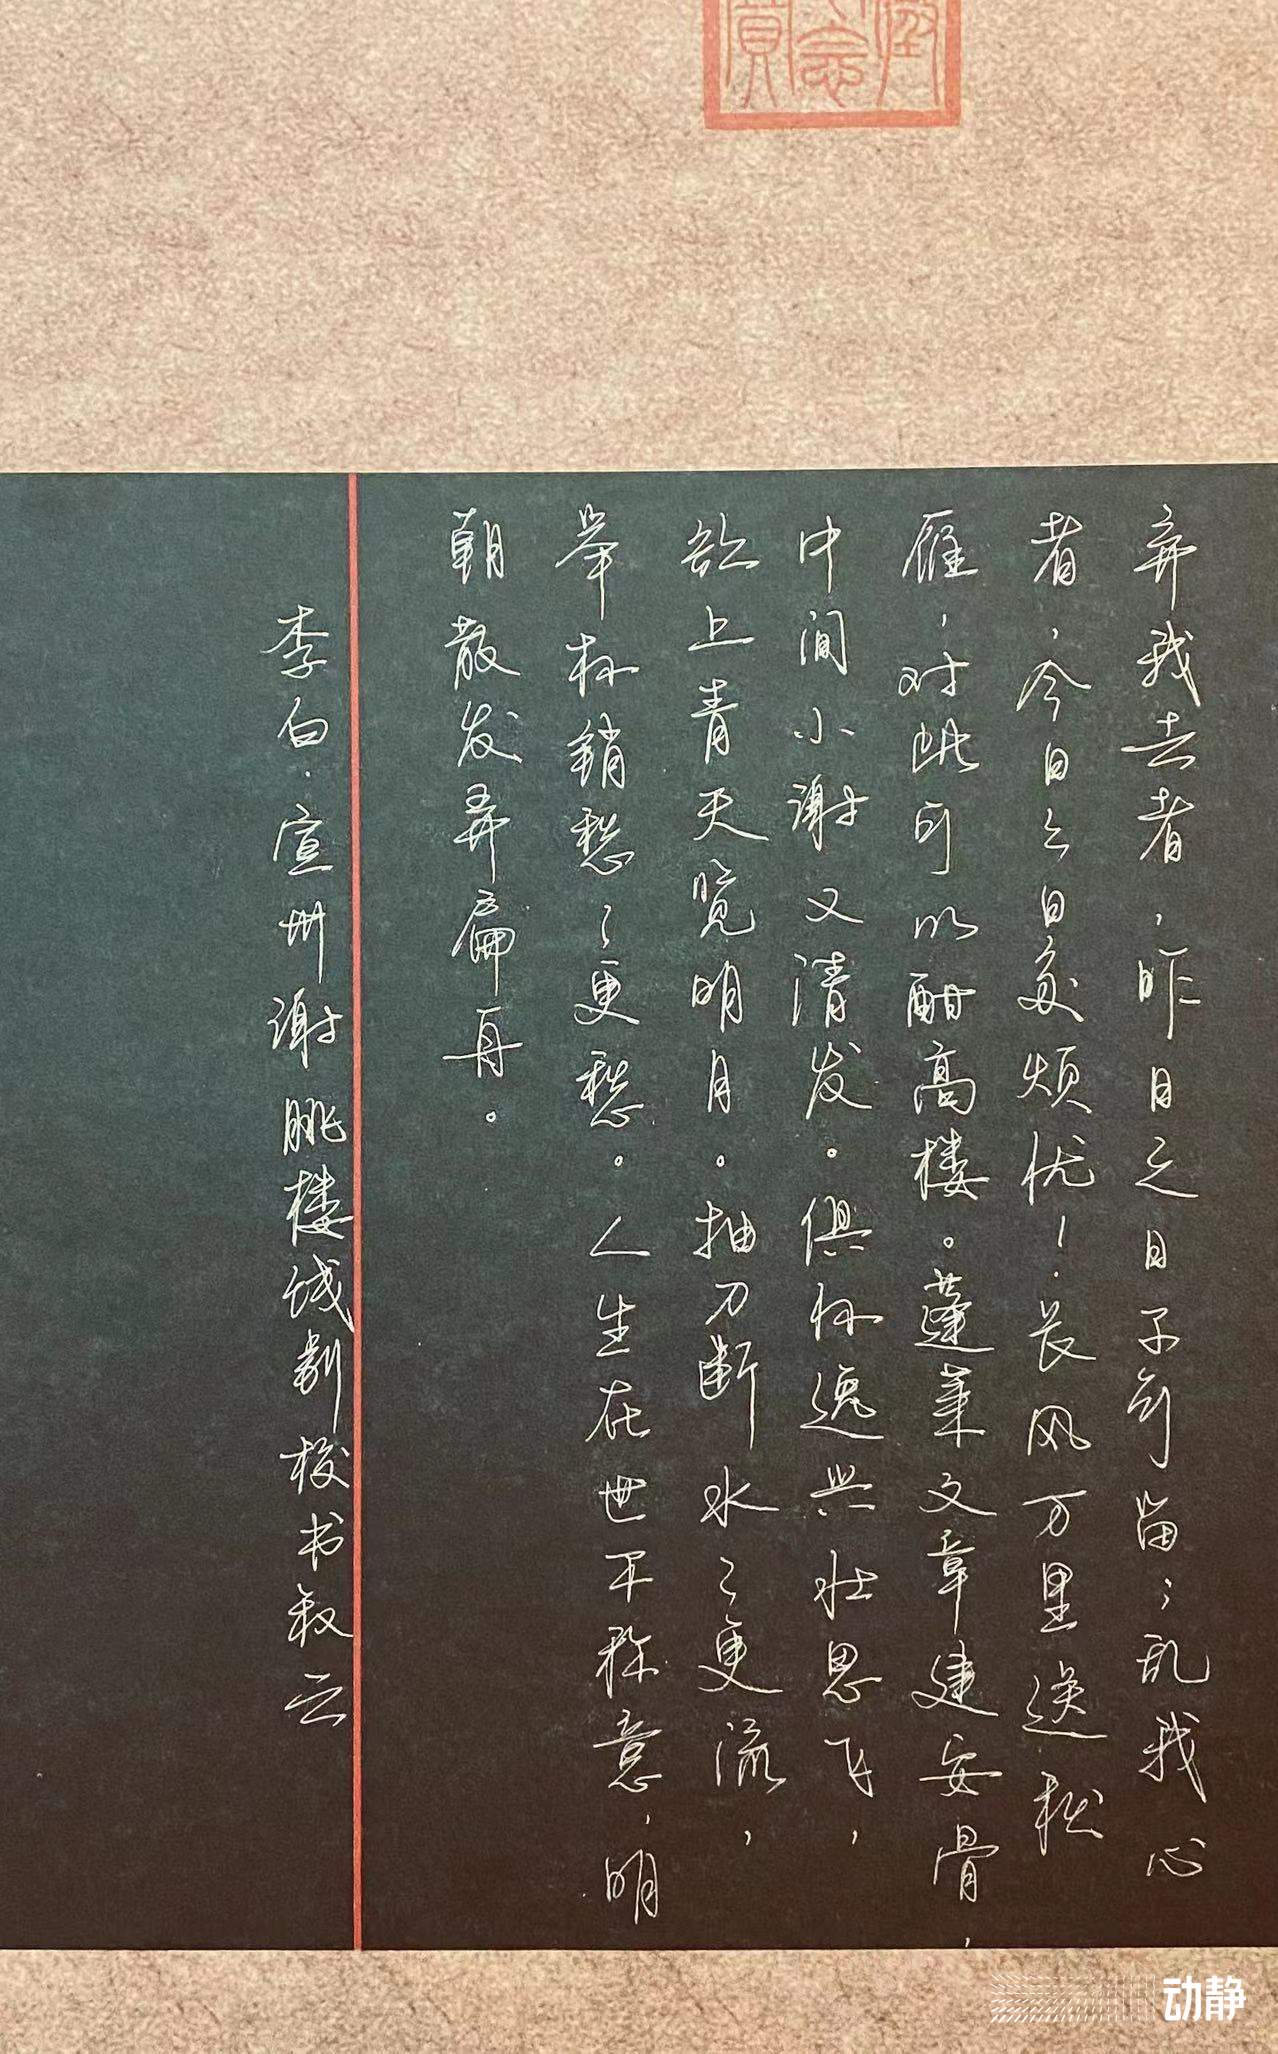 弃我去者，昨日之日不可留；乱我心
者，今日之日多烦忧！长风万里送秋
雁，对此可以酣高楼。蓬莱文章建安骨，
中间小谢又清发。俱怀逸兴壮思飞，
欲上青天览明月。抽刀断水々更流，
举杯销愁々更愁。人生在世不称意，明
朝散发弄扁舟。
李白·宣州谢朓楼饯别校书叔云
动静